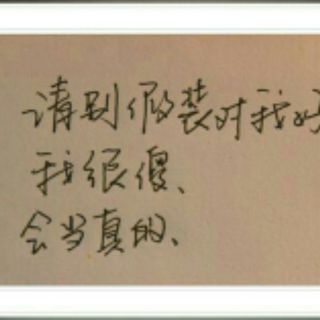 请别假装对我好
我很傻、
会当真的、